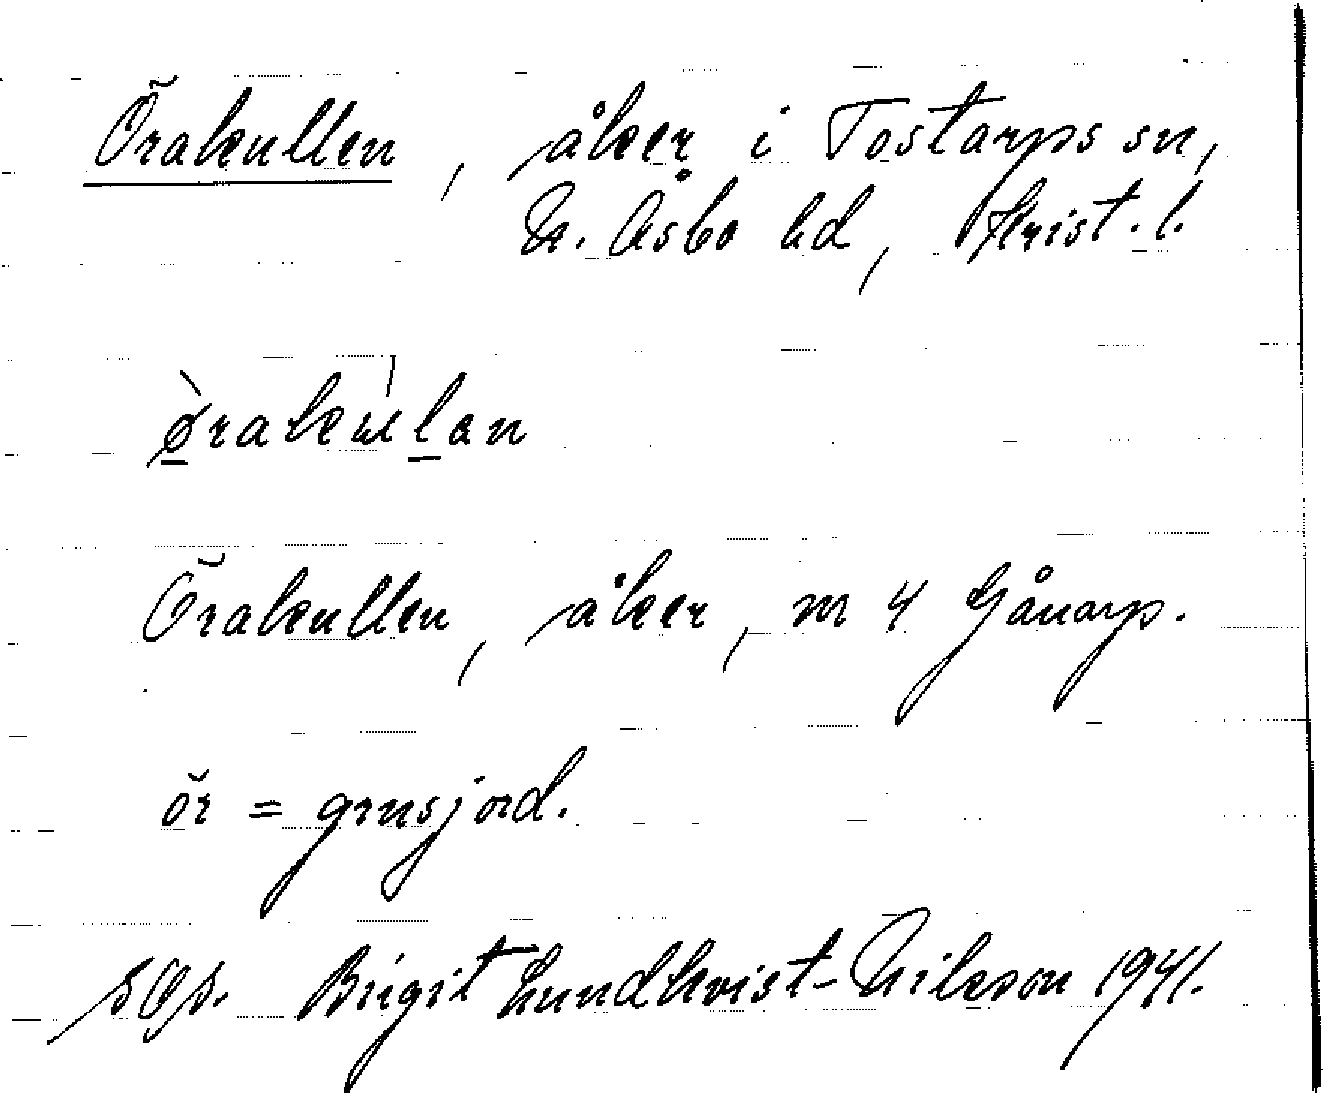 Örakullen, åker i Tostarps sn,
N. Åsbo hd, Krist. l.
ø̀rakúlan
Örakullen, åker, nr 4 Gånarp.
ör = grusjord.
SOP. Birgit Lundkvist-Nilsson 1941.